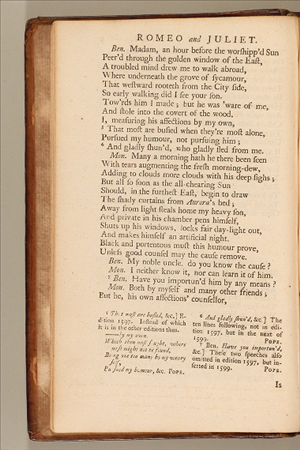 ROMEO and JULIET.
Ben. Madam, an hour before the worshipp'd Sun
Peer'd through the golden window of the East,
A troubled mind drew me to walk abroad,
Where underneath the grove of sycamour,
That westward rooteth from the City side,
So early walking did I see your son.
Tow'rds him I made; but he was 'ware of me,
And stole into the covert of the wood.
I, measuring his affections by my own,
⁵ That most are busied when they're most alone,
Pursued my humour, not pursuing him;
⁶ And gladly shun'd, who gladly fled from me.
Mon. Many a morning hath he there been seen
With tears augmenting the fresh morning-dew,
Adding to clouds more clouds with his deep sighs;
But all so soon as the all-chearing Sun
Should, in the furthest East, begin to draw
The shady curtains from Aurora's bed;
Away from light steals home my heavy son,
And private in his chamber pens himself,
Shuts up his windows, locks fair day-light out,
And makes himself an artificial night.
Black and portentous must this humour prove,
Unless good counsel may the cause remove.
Ben. My noble uncle, do you know the cause?
Mon. I neither know it, nor can learn it of him.
⁷ Ben. Have you importun'd him by any means?
Mon. Both by myself and many other friends;
But he, his own affections' counsellor,
⁵ That most are busied, &c.] E-
dition 1597. Instead of which
it is in the other editions thus.
——by my own,
Which then most sought, where
most might not be found,
Being one too many by my weary
self,
Pursued my humour, &c. POPE.
⁶ And gladly shun'd, &c.] The
ten lines following, not in edi-
tion 1597, but in the next of
1599. POPE.
⁷ Ben. Have you importun'd,
&c.] These two speeches also
omitted in edition 1597, but in-
serted in 1599. POPE.
Is